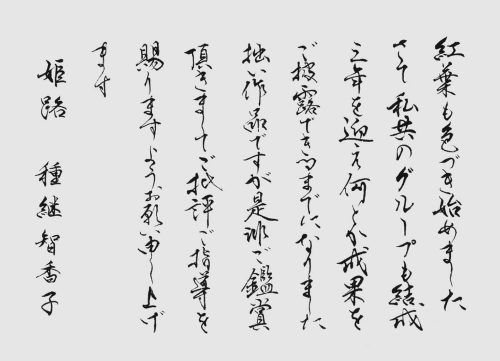 紅葉も色づき始めました
さて私共のグループも結成
三年を迎え何とか成果を
ご披露できるまでになりました
拙い作品ですが是非ご鑑賞
頂きましてご批評ご指導を
賜りますようお願い申し上げ
ます
姫路 種継智香子